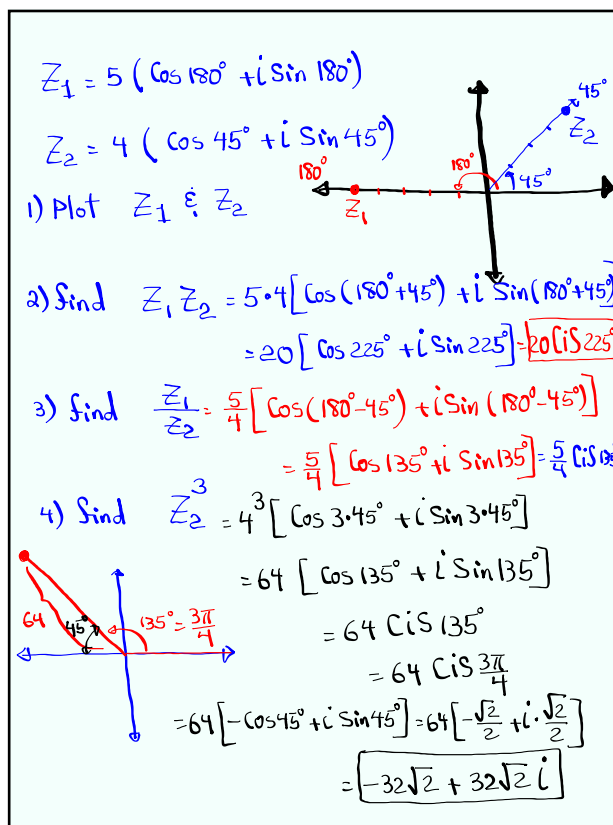 Z₁ = 5 (Cos 180° + i Sin 180°)
45°
Z₂
Z₂ = 4 ( Cos 45° + i Sin 45°)
180°
180°
45°
Z₁
1) Plot Z₁ & Z₂
2) find Z₁ Z₂ = 5·4[Cos(180°+45°) + i Sin(180°+45°)]
= 20 [ Cos 225° + i Sin 225°] = 20 CiS 225°
3) find Z₁/Z₂ = 5/4 [Cos(180°-45°) + i Sin (180°-45°)]
= 5/4 [Cos 135° + i Sin 135°] = 5/4 CiS 135
4) find Z₂³ = 4³ [ Cos 3·45° + i Sin 3·45°]
= 64 [ Cos 135° + i Sin 135°]
64
45°
135° = 3π/4
= 64 CiS 135°
= 64 CiS 3π/4
= 64 [-Cos 45° + i Sin 45°] = 64[-√2/2 + i·√2/2]
= -32√2 + 32√2 i